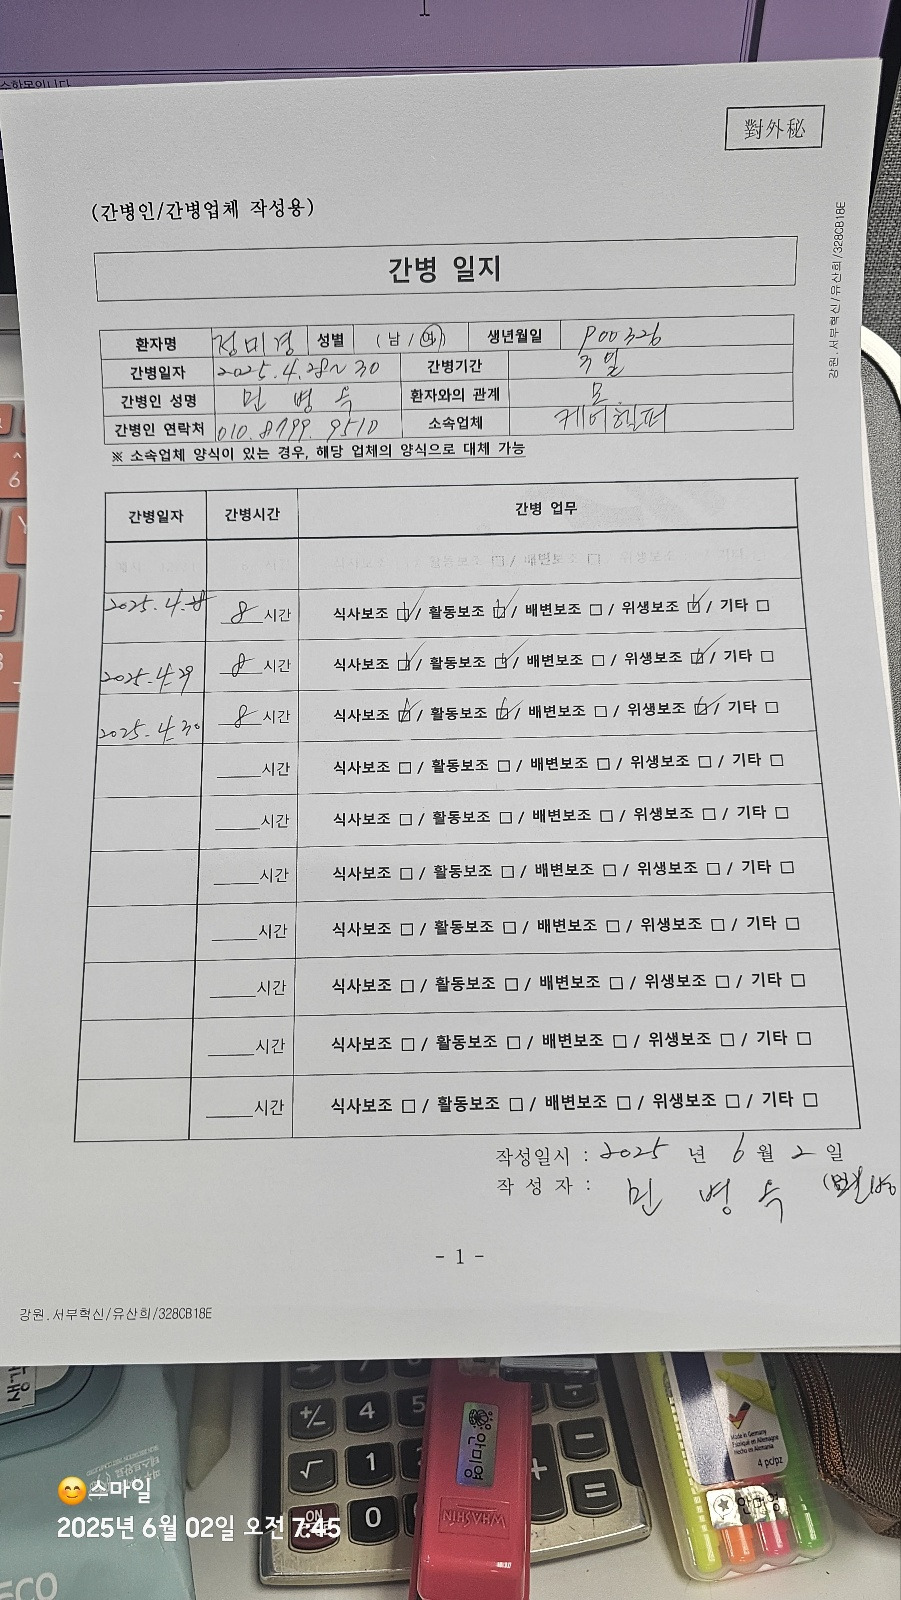 수항목입니다
對外秘
(간병인/간병업체 작성용)
강원.서무혁신/유산희/328CB18E
간병 일지
환자명 정미경 성별 (남 / 여) 생년월일 P00326
간병일자 2025.4.28~30 간병기간 3일
간병인 성명 민병숙 환자와의 관계 모
간병인 연락처 010.8799.9510 소속업체 케어헬퍼
※ 소속업체 양식이 있는 경우, 해당 업체의 양식으로 대체 가능
간병일자 간병시간 간병 업무
2025.4.28 8 시간 식사보조 ☑ / 활동보조 ☑ / 배변보조 □ / 위생보조 ☑ / 기타 □
2025.4.29 8 시간 식사보조 ☑ / 활동보조 ☑ / 배변보조 □ / 위생보조 ☑ / 기타 □
2025.4.30 8 시간 식사보조 ☑ / 활동보조 ☑ / 배변보조 □ / 위생보조 ☑ / 기타 □
____시간 식사보조 □ / 활동보조 □ / 배변보조 □ / 위생보조 □ / 기타 □
____시간 식사보조 □ / 활동보조 □ / 배변보조 □ / 위생보조 □ / 기타 □
____시간 식사보조 □ / 활동보조 □ / 배변보조 □ / 위생보조 □ / 기타 □
____시간 식사보조 □ / 활동보조 □ / 배변보조 □ / 위생보조 □ / 기타 □
____시간 식사보조 □ / 활동보조 □ / 배변보조 □ / 위생보조 □ / 기타 □
____시간 식사보조 □ / 활동보조 □ / 배변보조 □ / 위생보조 □ / 기타 □
____시간 식사보조 □ / 활동보조 □ / 배변보조 □ / 위생보조 □ / 기타 □
작성일시 : 2025 년 6 월 2 일
작 성 자 : 민 병 숙
- 1 -
강원.서무혁신/유산희/328CB18E
+/- 4 5
√ 1 − +
ON 0 =
안미영
WHASHIN
Made in Germany
4 pc/pz
스마일
2025년 6월 02일 오전 7:45
ECO